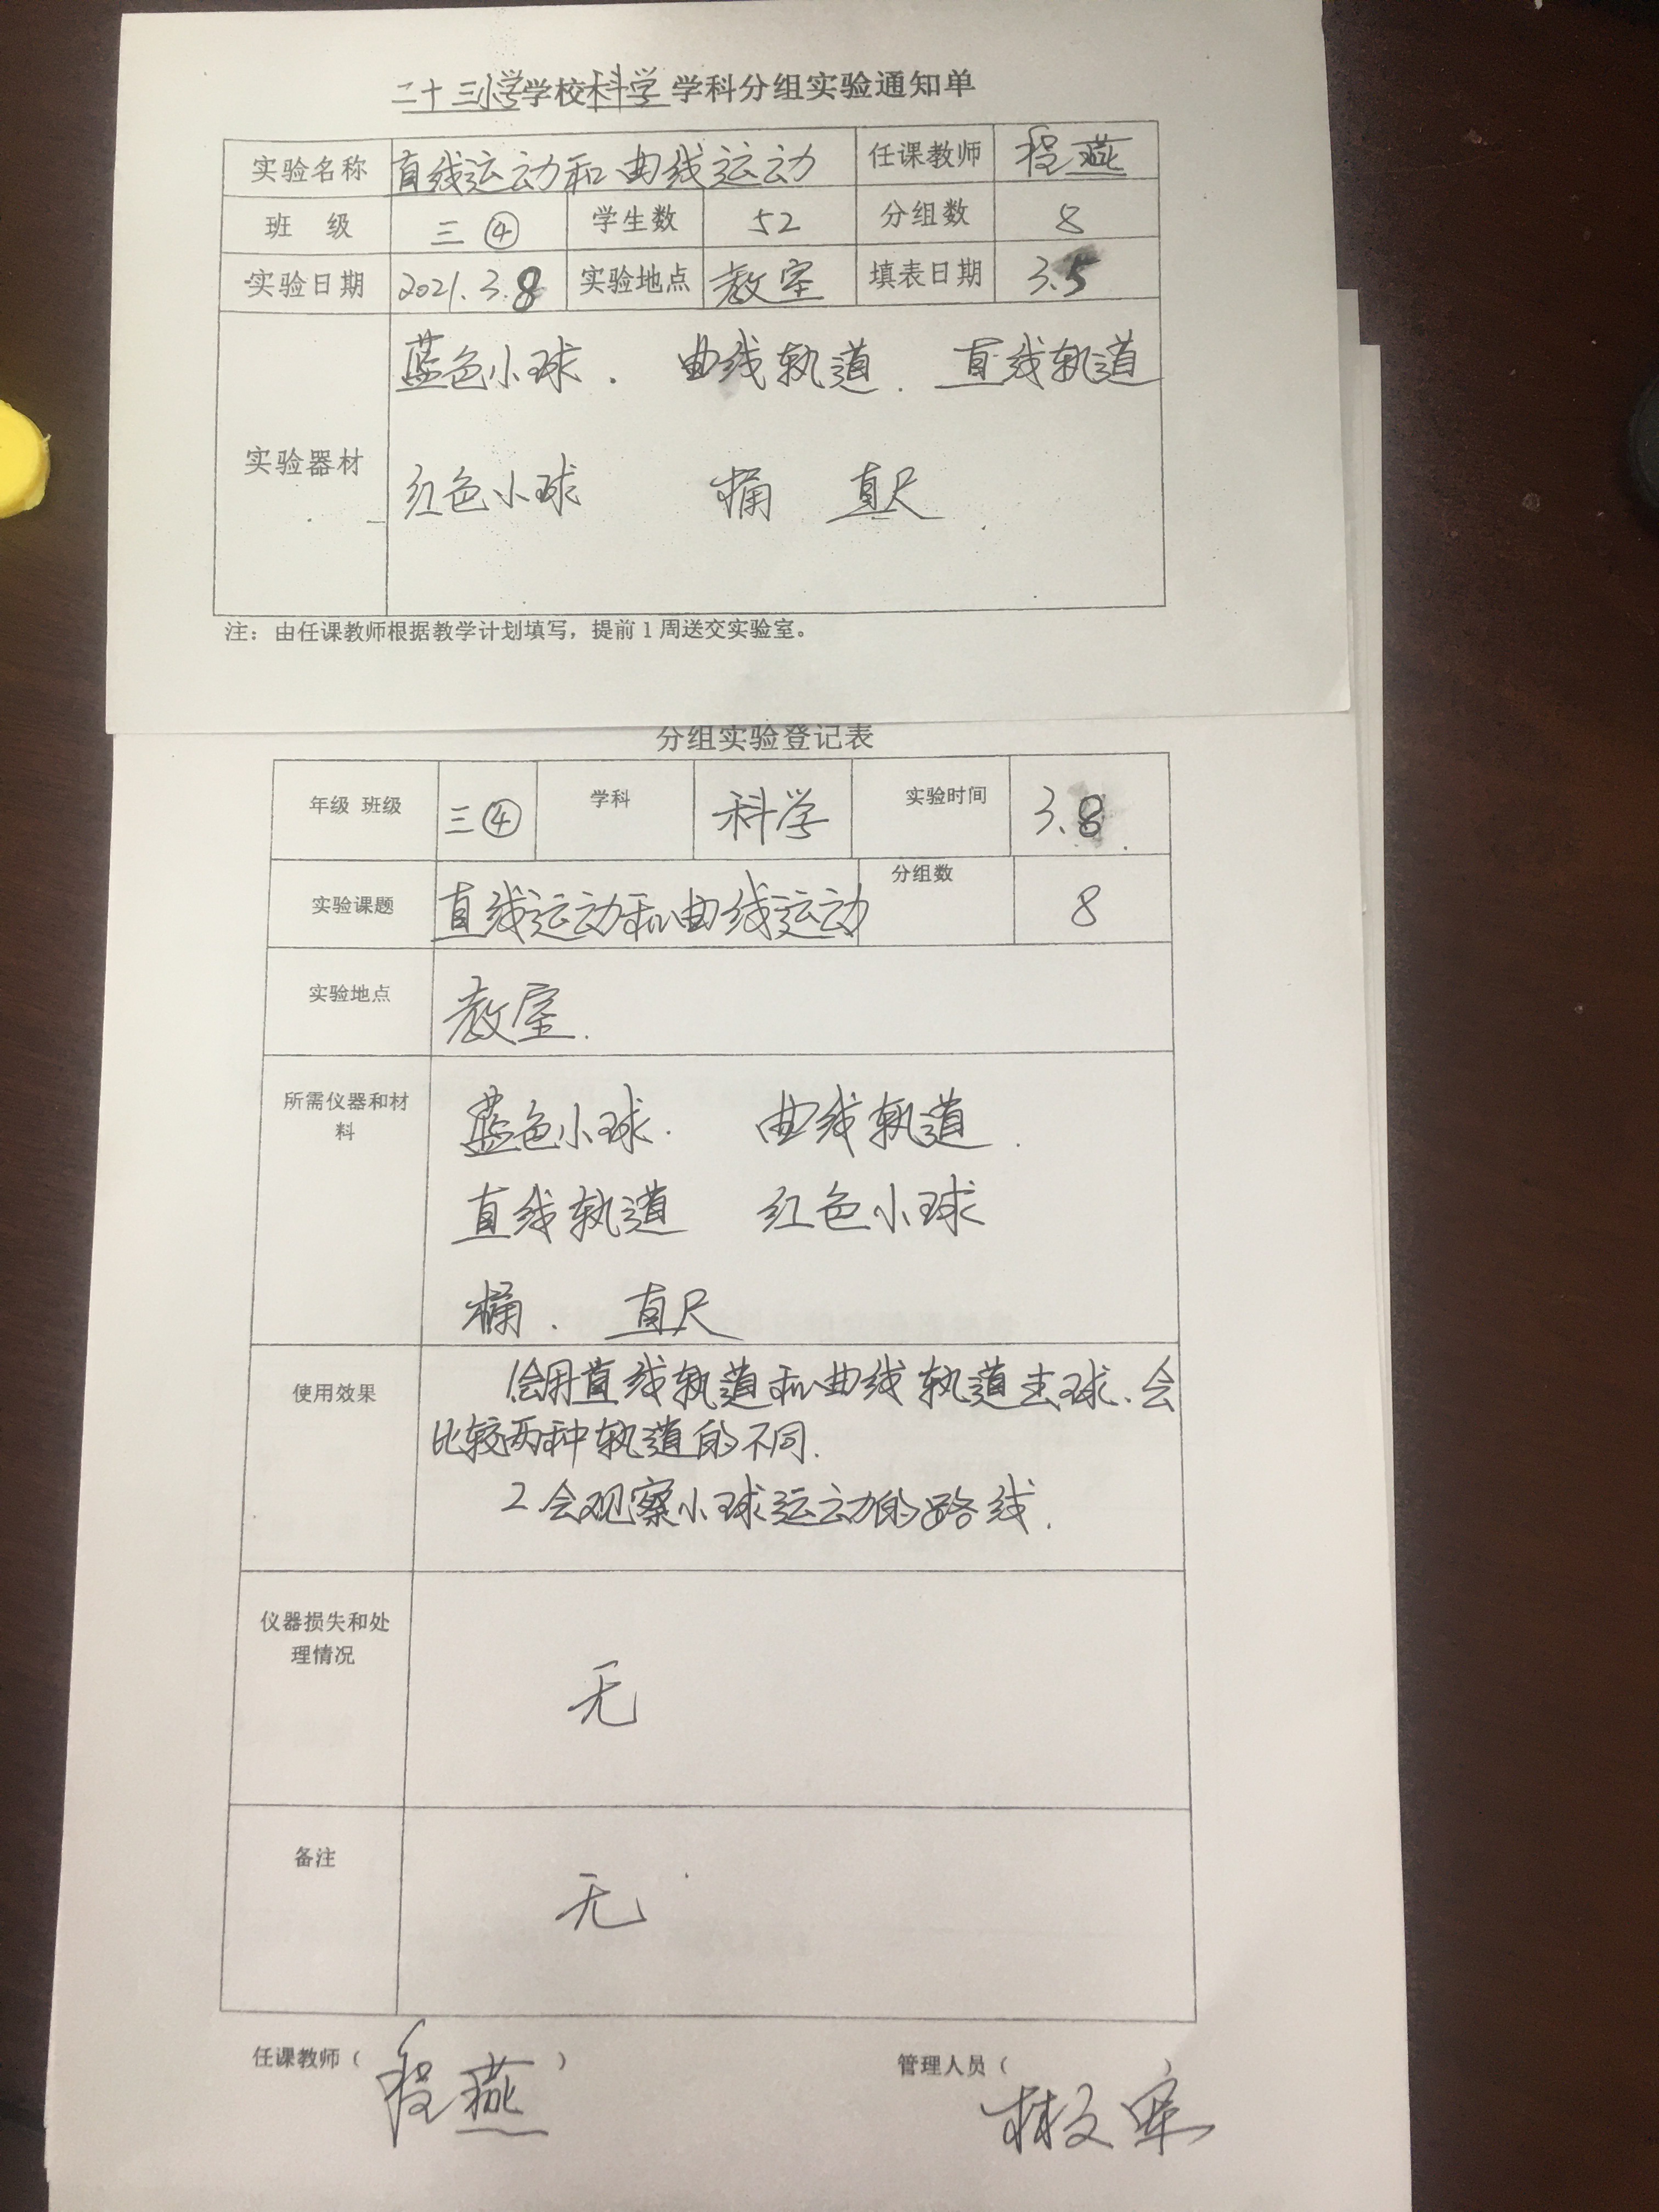 二十三小学学校科学学科分组实验通知单
实验名称 直线运动和曲线运动 任课教师 程燕
班 级 三④ 学生数 52 分组数 8
实验日期 2021.3.8 实验地点 教室 填表日期 3.5
蓝色小球. 曲线轨道. 直线轨道
实验器材
红色小球 桶 直尺.
注：由任课教师根据教学计划填写，提前1周送交实验室。
分组实验登记表
年级 班级 三④ 学科 科学 实验时间 3.8
实验课题 直线运动和曲线运动 分组数 8
实验地点 教室.
所需仪器和材 蓝色小球. 曲线轨道.
料
直线轨道 红色小球
桶. 直尺
使用效果 1会用直线轨道和曲线轨道 球.会
比较两种轨道的不同.
2会观察小球运动的路线.
仪器损失和处
理情况
无
备注
无
任课教师（程燕） 管理人员（林文军）